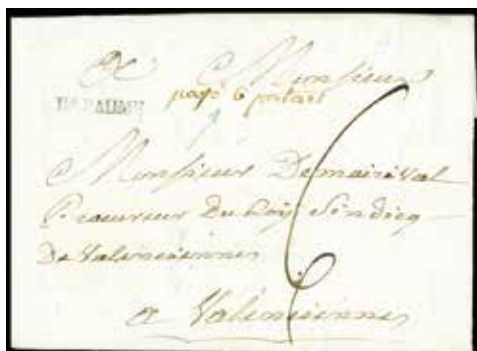 A Monsieur
payé 6 patars
Monsieur Demaireval
Procureur Du Roij Sindicq
De Valenciennes
a Valenciennes
6